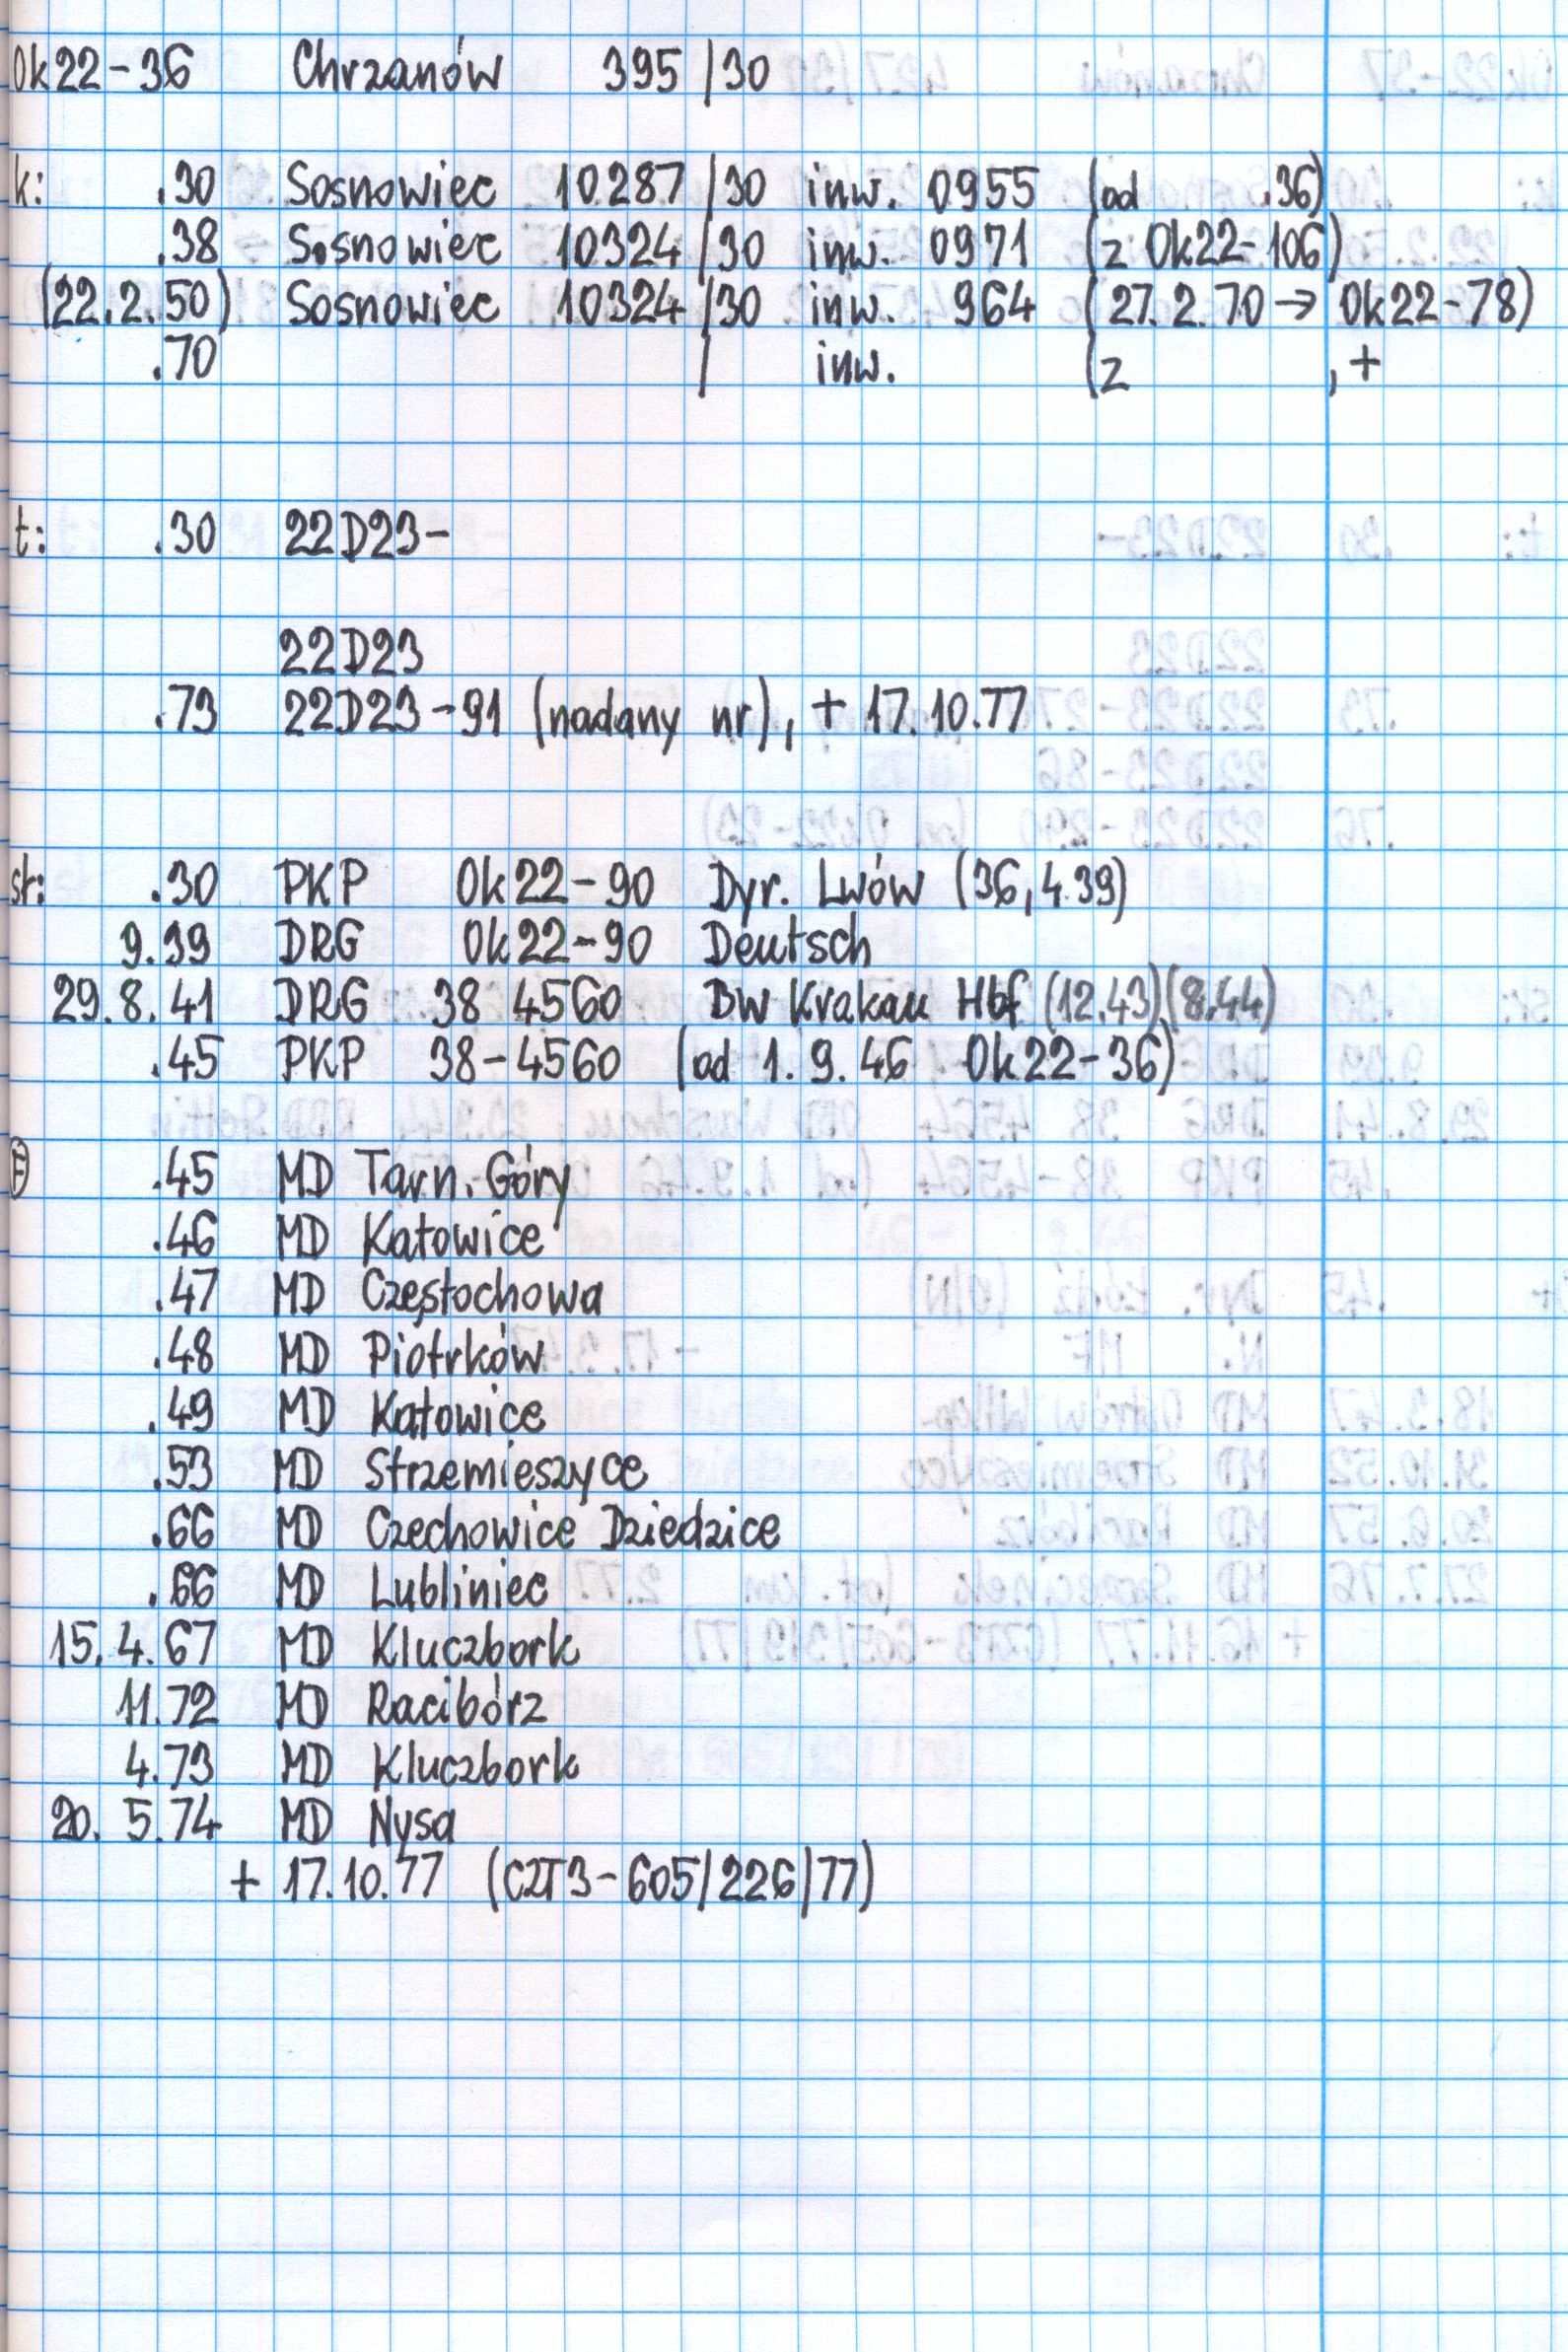 Ok22-36 Chrzanów 395/30
k: .30 Sosnowiec 10287/30 inw. 0955 (od .36)
.38 Sosnowiec 10324/30 inw. 0971 (z Ok22-106)
(22.2.50) Sosnowiec 10324/30 inw. 964 (27.2.70 → Ok22-78)
.70 / inw. (z , +
t: .30 22D23-
22D23
.73 22D23-91 (nadany nr), + 17.10.77
st: .30 PKP Ok22-90 Dyr. Lwów (36, 4.39)
9.39 DRG Ok22-90 Deutsch
29.8.41 DRG 38 4560 BW Krakau Hbf (12.43)(8.44)
.45 PKP 38-4560 (od 1.9.46 Ok22-36)
.45 MD Tarn. Góry
.46 MD Katowice
.47 MD Częstochowa
.48 MD Piotrków
.49 MD Katowice
.53 MD Strzemieszyce
.66 MD Czechowice Dziedzice
.66 MD Lubliniec
15.4.67 MD Kluczbork
11.72 MD Racibórz
4.73 MD Kluczbork
20.5.74 MD Nysa
+ 17.10.77 (CZT3-605/226/77)